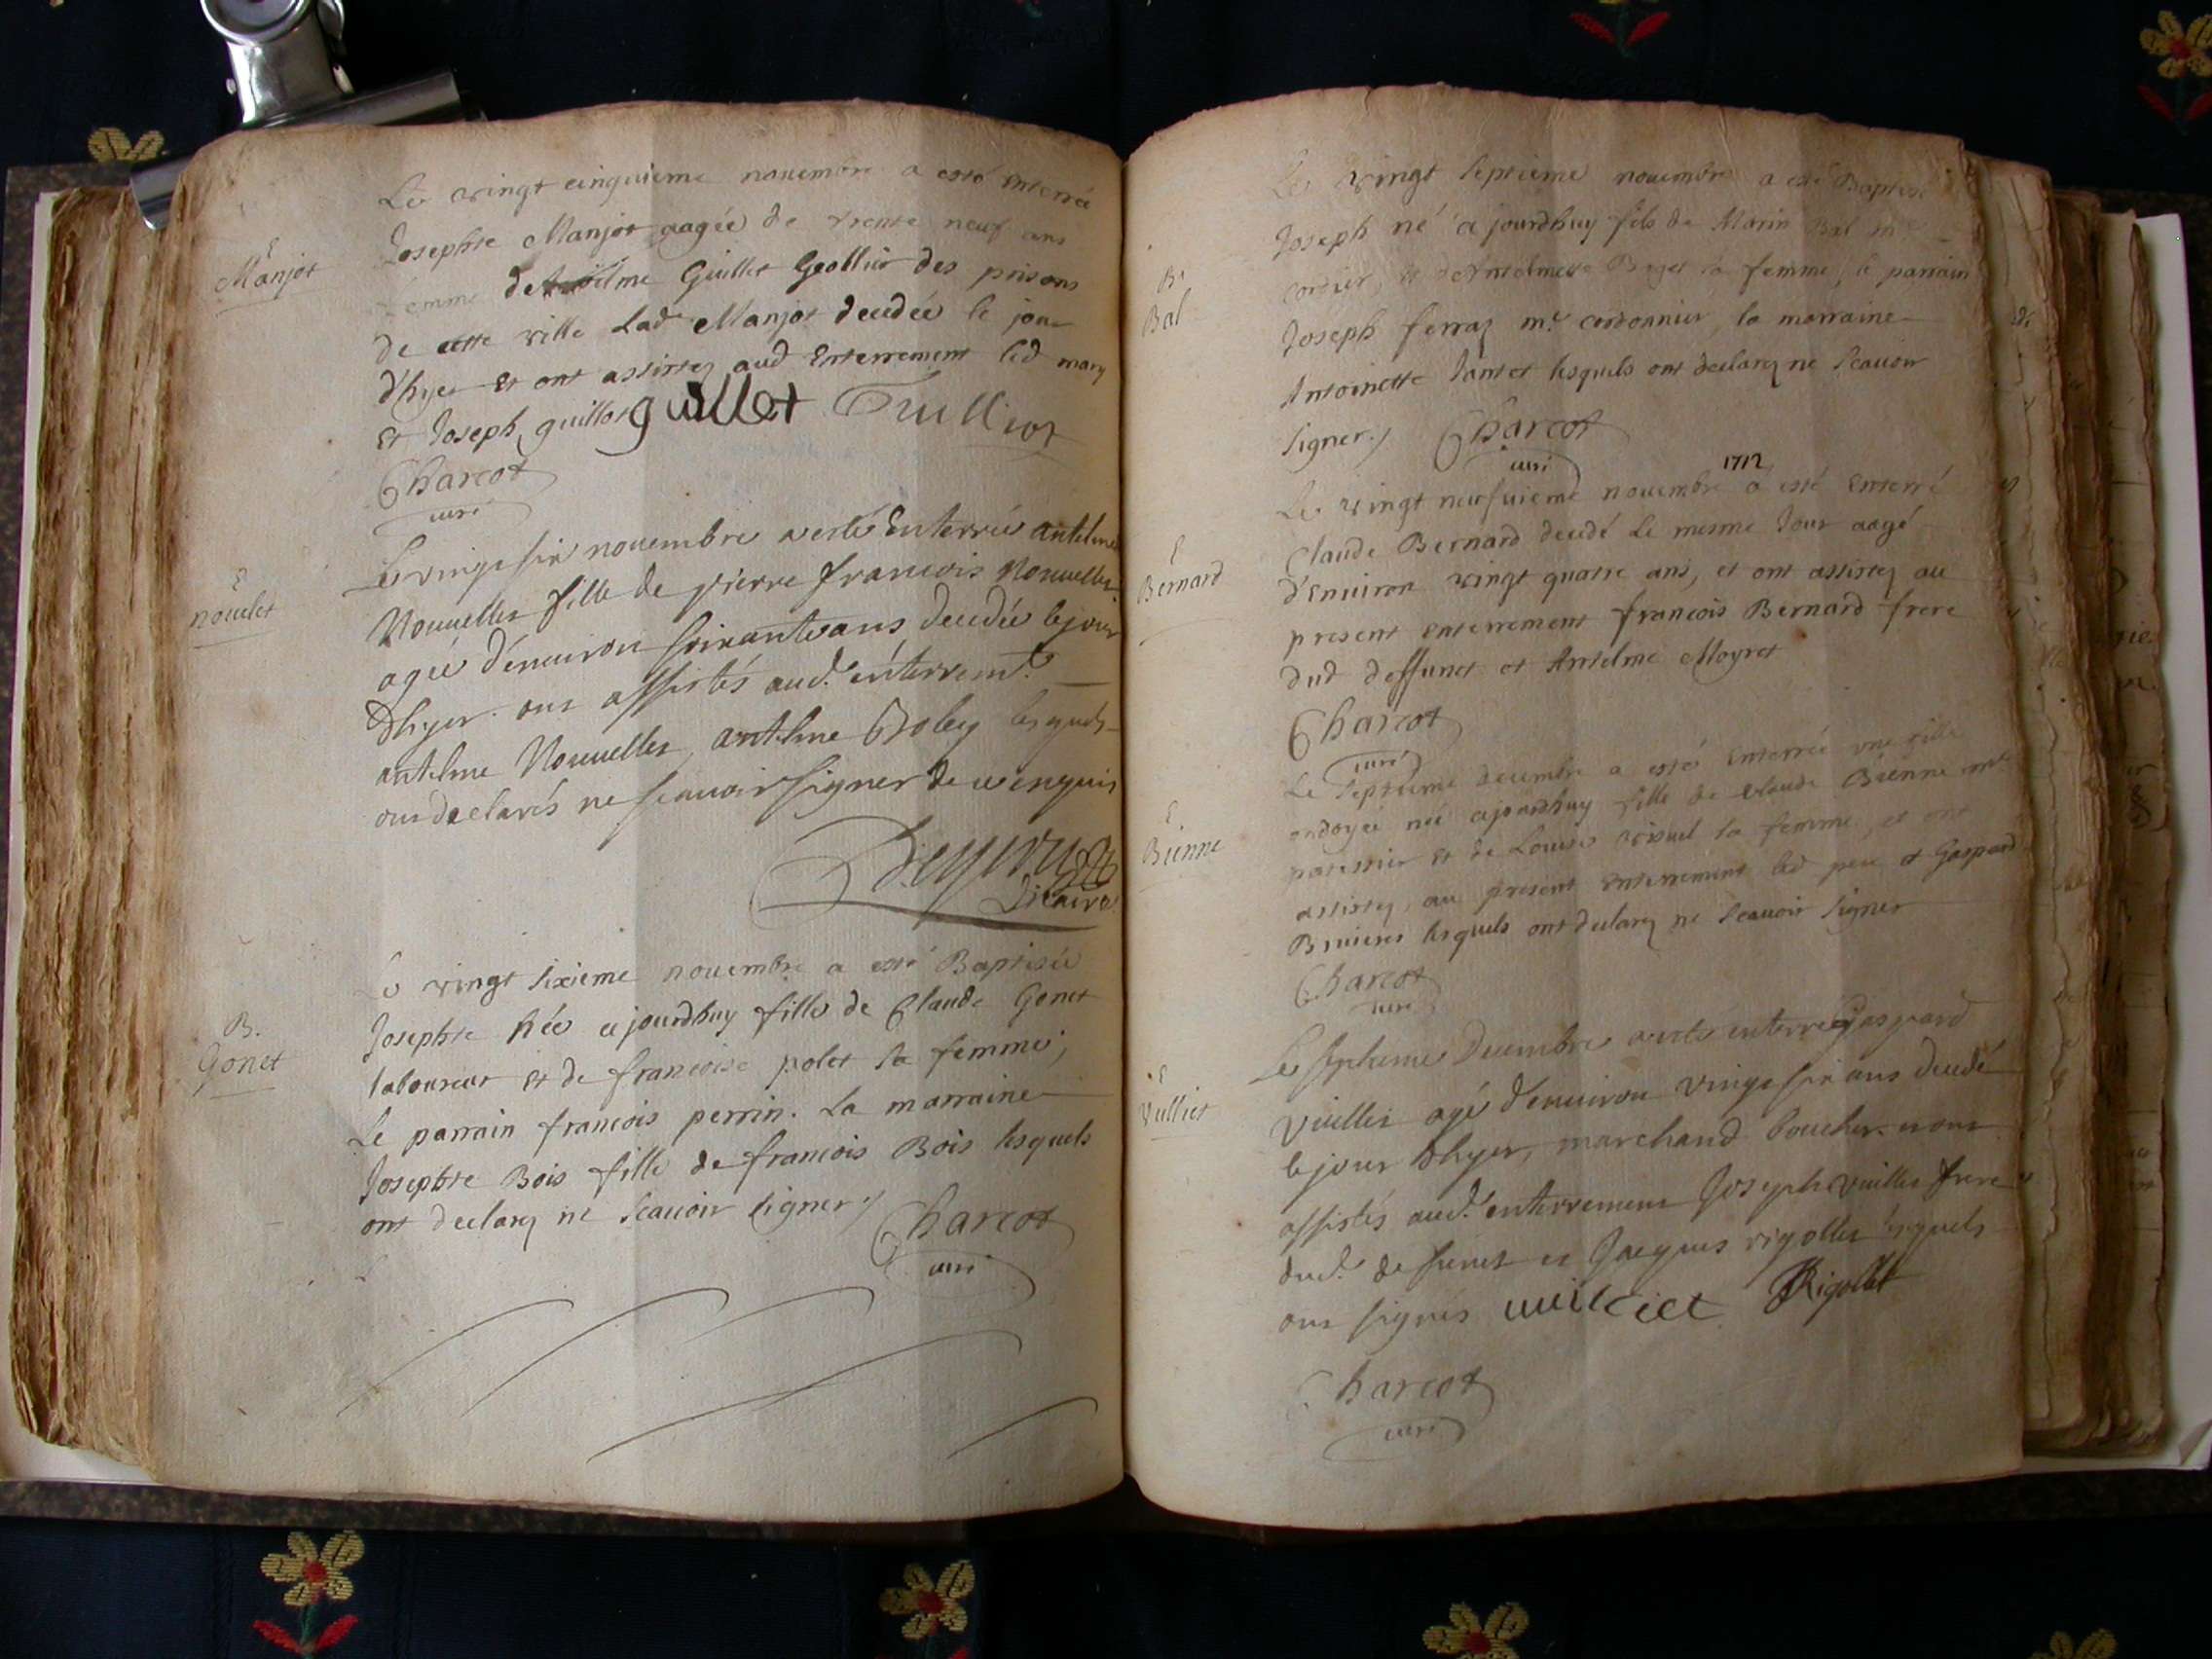 Le vingt cinquieme nouembre a esté Enterrée
E
Manjot
Josephte Manjot aagée de trente neuf ans
femme de Antelme Guillet Geollier des prisons
de cette ville Lad Manjot decedée le jour
d'hyer Et ont assistez aud Enterrement led mary
Et Joseph guillot guillet
Charcot
curé
Le vingt six nouembre a esté Enterrée antelme
E
nouelet
Nouuellet fille de pierre francois Nouuellet
agée d'enuiron soixante ans decedée le jour
d'hyer. ont assistés aud. enterremt.
antelme Nouuellet, antelme Boley lesquels
ont declarés ne scauoir signer de ce enquis
Vicaire
Le vingt sixieme nouembre a esté Baptisée
B.
Gonet
Josephte née ajourdhuy fille de Claude Gonet
laboureur et de francoise polet sa femme,
Le parrain francois perrin. La marraine
Josephte Bois fille de francois Bois lesquels
ont declarez ne scauoir signer
Charcot
curé
Le vingt septieme nouembre a esté Baptisé
Joseph né ajourdhuy fils de Marin Bal me
B.
Bal
cordier, et d'Antelmette Boget sa femme, le parrain
Joseph ferraz me. cordonnier, la marraine
Antoinette Jantet lesquels ont declarez ne scauoir
signer. Charcot
curé
1712
Le vingt neufuieme nouembre a esté Enterré
E
Bernard
Claude Bernard decedé Le mesme Jour aagé
d'Enuiron vingt quatre ans, et ont assistez au
present enterrement francois Bernard frere
dud deffunct et Antelme Moyret
Charcot
curé
Le septieme decembre a esté enterrée une fille
E
Bienne
ondoyée née ajourdhuy fille de Claude Bienne me
patissier et de Louise sa femme, et ont
assistez au present enterrement led pere et Gaspard
lesquels ont declarez ne scauoir signer
Charcot
curé
Le septieme Decembre a esté enterré Gaspard
E
Vulliet
Vuillet agé d'enuiron vingt six ans decedé
le jour d'hyer, marchand boucher. nont
assistés aud. enterrement Joseph Vuillet frere
dud. defunct et Jacques rigollet lesquels
ont signés vuilliet Rigollet
Charcot
curé